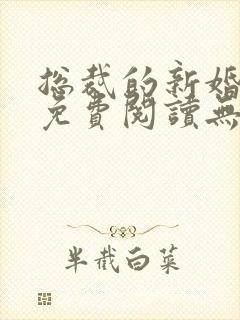 总裁的新婚
免費閱讀無
半截白菜